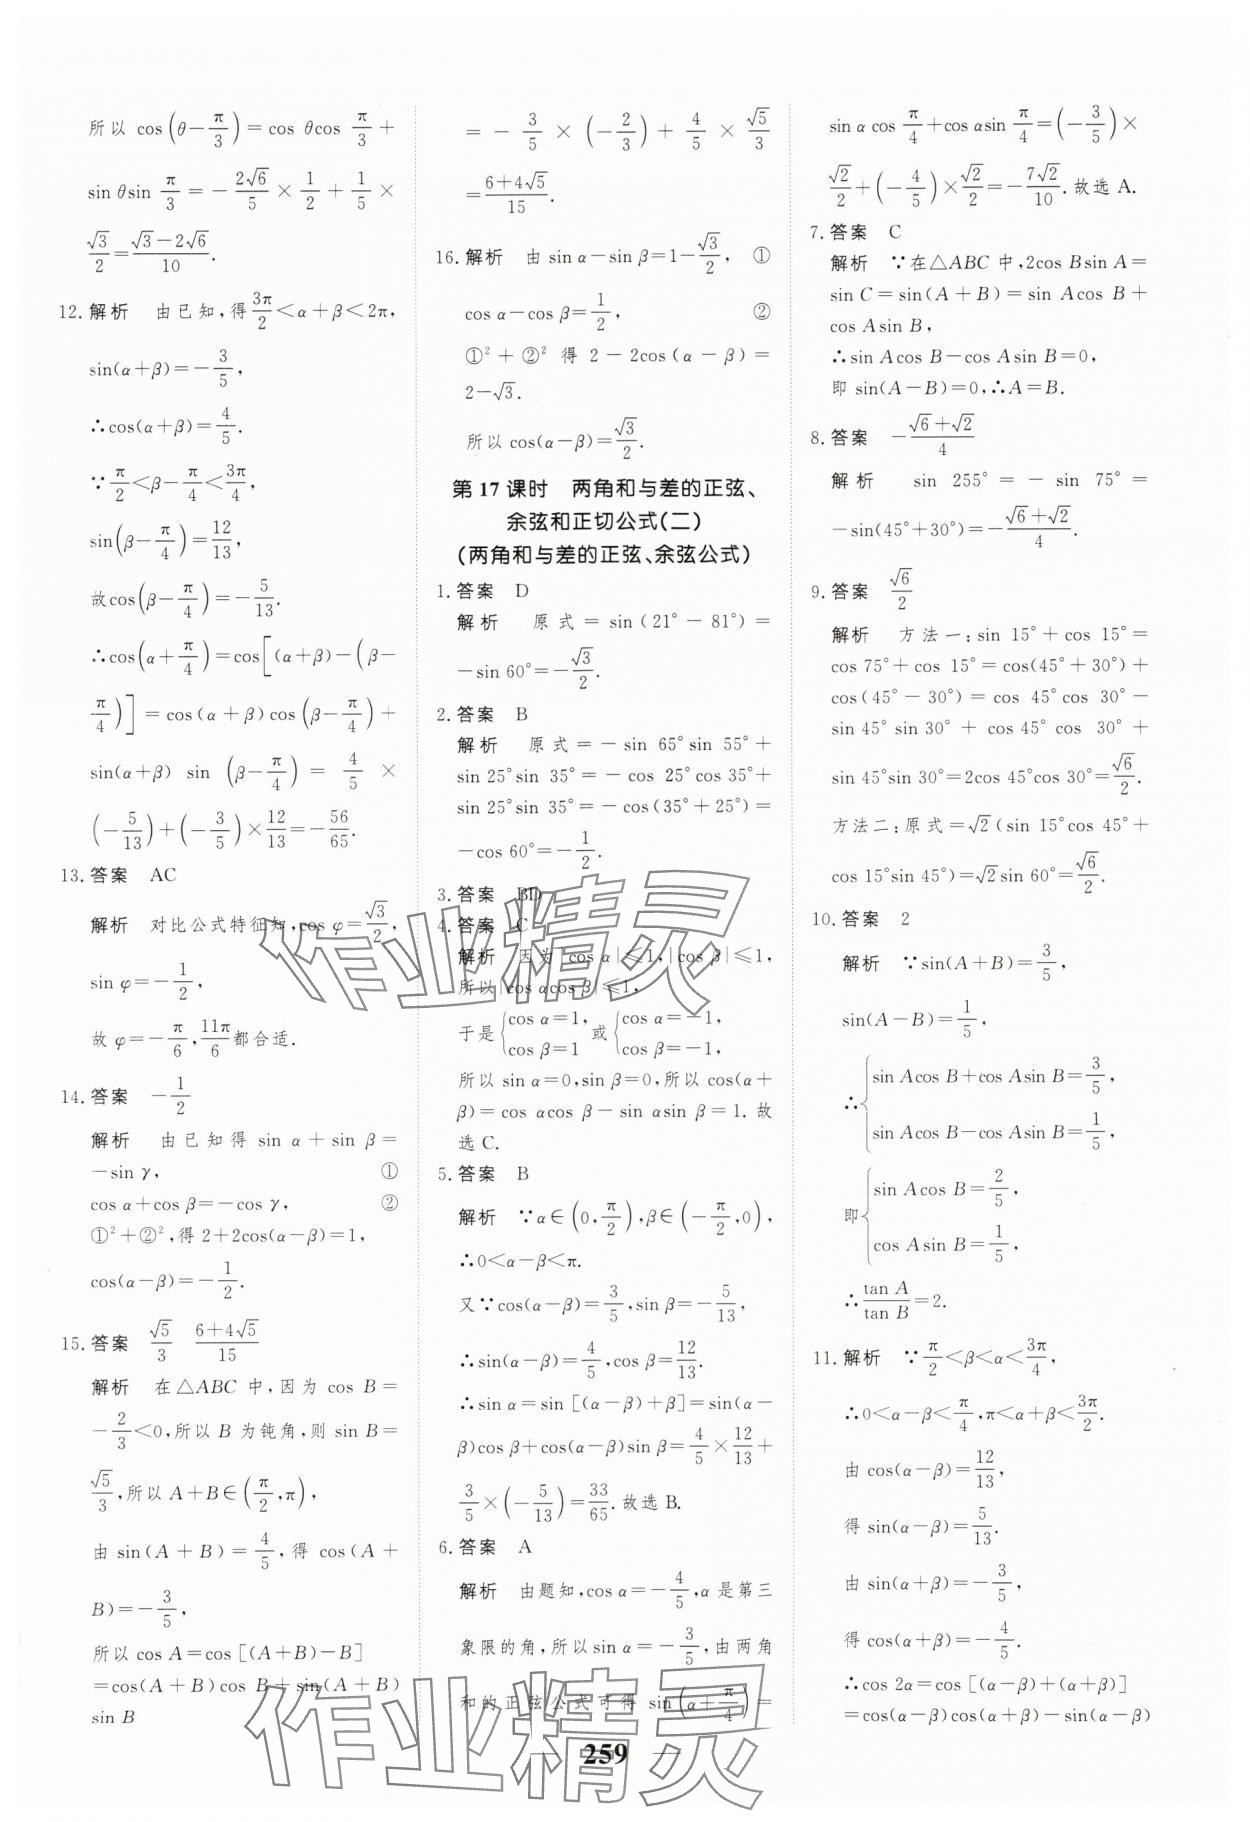 所以 cos(θ−π/3)=cos θcos π/3+
sin θsin π/3=−2√6/5×1/2+1/5×
√3/2=(√3−2√6)/10.
12.解析 由已知,得3π/2<α+β<2π,
sin(α+β)=−3/5,
∴cos(α+β)=4/5.
∵π/2<β−π/4<3π/4,
sin(β−π/4)=12/13,
故cos(β−π/4)=−5/13.
∴cos(α+π/4)=cos[(α+β)−(β−
π/4)]=cos(α+β)cos(β−π/4)+
sin(α+β) sin (β−π/4)=4/5×
(−5/13)+(−3/5)×12/13=−56/65.
13.答案 AC
解析 对比公式特征知,cos φ=√3/2,
sin φ=−1/2,
故 φ=−π/6,11π/6都合适.
14.答案 −1/2
解析 由已知得 sin α+sin β=
−sin γ, ①
cos α+cos β=−cos γ, ②
①²+②²,得 2+2cos(α−β)=1,
cos(α−β)=−1/2.
15.答案 √5/3 (6+4√5)/15
解析 在△ABC 中,因为 cos B=
−2/3<0,所以 B 为钝角,则 sin B=
√5/3,所以 A+B∈(π/2,π),
由 sin(A+B)=4/5,得 cos(A+
B)=−3/5,
所以 cos A=cos [(A+B)−B]
=cos(A+B)cos B+sin(A+B)
sin B
=−3/5×(−2/3)+4/5×√5/3
=(6+4√5)/15.
16.解析 由 sin α−sin β=1−√3/2, ①
cos α−cos β=1/2, ②
①²+②² 得 2−2cos(α−β)=
2−√3.
所以 cos(α−β)=√3/2.
第 17 课时 两角和与差的正弦、
余弦和正切公式(二)
(两角和与差的正弦、余弦公式)
1.答案 D
解析 原式=sin(21°−81°)=
−sin 60°=−√3/2.
2.答案 B
解析 原式=−sin 65°sin 55°+
sin 25°sin 35°=−cos 25°cos 35°+
sin 25°sin 35°=−cos(35°+25°)=
−cos 60°=−1/2.
3.答案 BD
4.答案 C
解析 因为|cos α|≤1,|cos β|≤1,
所以|cos αcos β|≤1,
于是{cos α=1, cos β=1 或{cos α=−1, cos β=−1,
所以 sin α=0,sin β=0,所以 cos(α+
β)=cos αcos β−sin αsin β=1.故
选 C.
5.答案 B
解析 ∵α∈(0,π/2),β∈(−π/2,0),
∴0<α−β<π.
又∵cos(α−β)=3/5,sin β=−5/13,
∴sin(α−β)=4/5,cos β=12/13.
∴sin α=sin [(α−β)+β]=sin(α−
β)cos β+cos(α−β)sin β=4/5×12/13+
3/5×(−5/13)=33/65.故选 B.
6.答案 A
解析 由题知,cos α=−4/5,α 是第三
象限的角,所以 sin α=−3/5,由两角
和的正弦公式可得 sin(α+π/4)=
sin α cos π/4+cos αsin π/4=(−3/5)×
√2/2+(−4/5)×√2/2=−7√2/10.故选 A.
7.答案 C
解析 ∵在△ABC 中,2cos Bsin A=
sin C=sin(A+B)=sin Acos B+
cos Asin B,
∴sin Acos B−cos Asin B=0,
即 sin(A−B)=0,∴A=B.
8.答案 −(√6+√2)/4
解析 sin 255°=−sin 75°=
−sin(45°+30°)=−(√6+√2)/4.
9.答案 √6/2
解析 方法一:sin 15°+cos 15°=
cos 75°+cos 15°=cos(45°+30°)+
cos(45°−30°)=cos 45°cos 30°−
sin 45°sin 30°+cos 45°cos 30°+
sin 45°sin 30°=2cos 45°cos 30°=√6/2.
方法二:原式=√2(sin 15°cos 45°+
cos 15°sin 45°)=√2sin 60°=√6/2.
10.答案 2
解析 ∵sin(A+B)=3/5,
sin(A−B)=1/5,
∴{sin Acos B+cos Asin B=3/5,
sin Acos B−cos Asin B=1/5,
即{sin Acos B=2/5,
cos Asin B=1/5,
∴tan A/tan B=2.
11.解析 ∵π/2<β<α<3π/4,
∴0<α−β<π/4,π<α+β<3π/2.
由 cos(α−β)=12/13,
得 sin(α−β)=5/13.
由 sin(α+β)=−3/5,
得 cos(α+β)=−4/5.
∴cos 2α=cos [(α−β)+(α+β)]
=cos(α−β)cos(α+β)−sin(α−β)
259
作业精灵
作业精灵